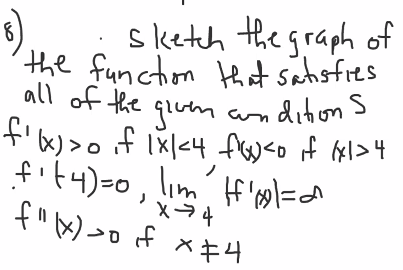 8) . Sketch the graph of
the function that satisfies
all of the given conditions
f'(x)>0 if |x|<4, f'(x)<0 if |x|>4
f'(-4)=0, lim x→4 |f'(x)|=∞
f''(x)>0 if x≠4